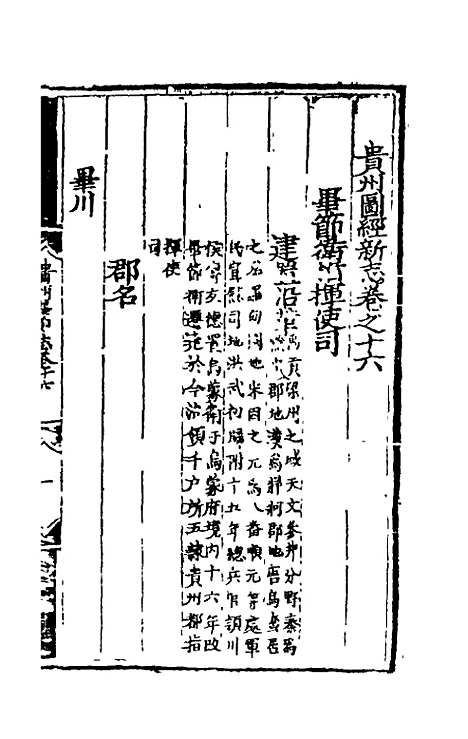 貴州圖經新志卷之十六
畢節衛指揮使司
建置沿革
禹貢梁州之域天文參井分野秦爲
郡地漢爲牂柯郡地唐烏蠻居
之宋因之元爲八番順元等處軍
民宣慰司地洪武初歸附十五年總兵官潁川
侯傅友德置烏蒙衛于烏蒙府境内十六年改
畢節衛遷於今治領千戶所五隸貴州都指
揮使
司
郡名
畢川